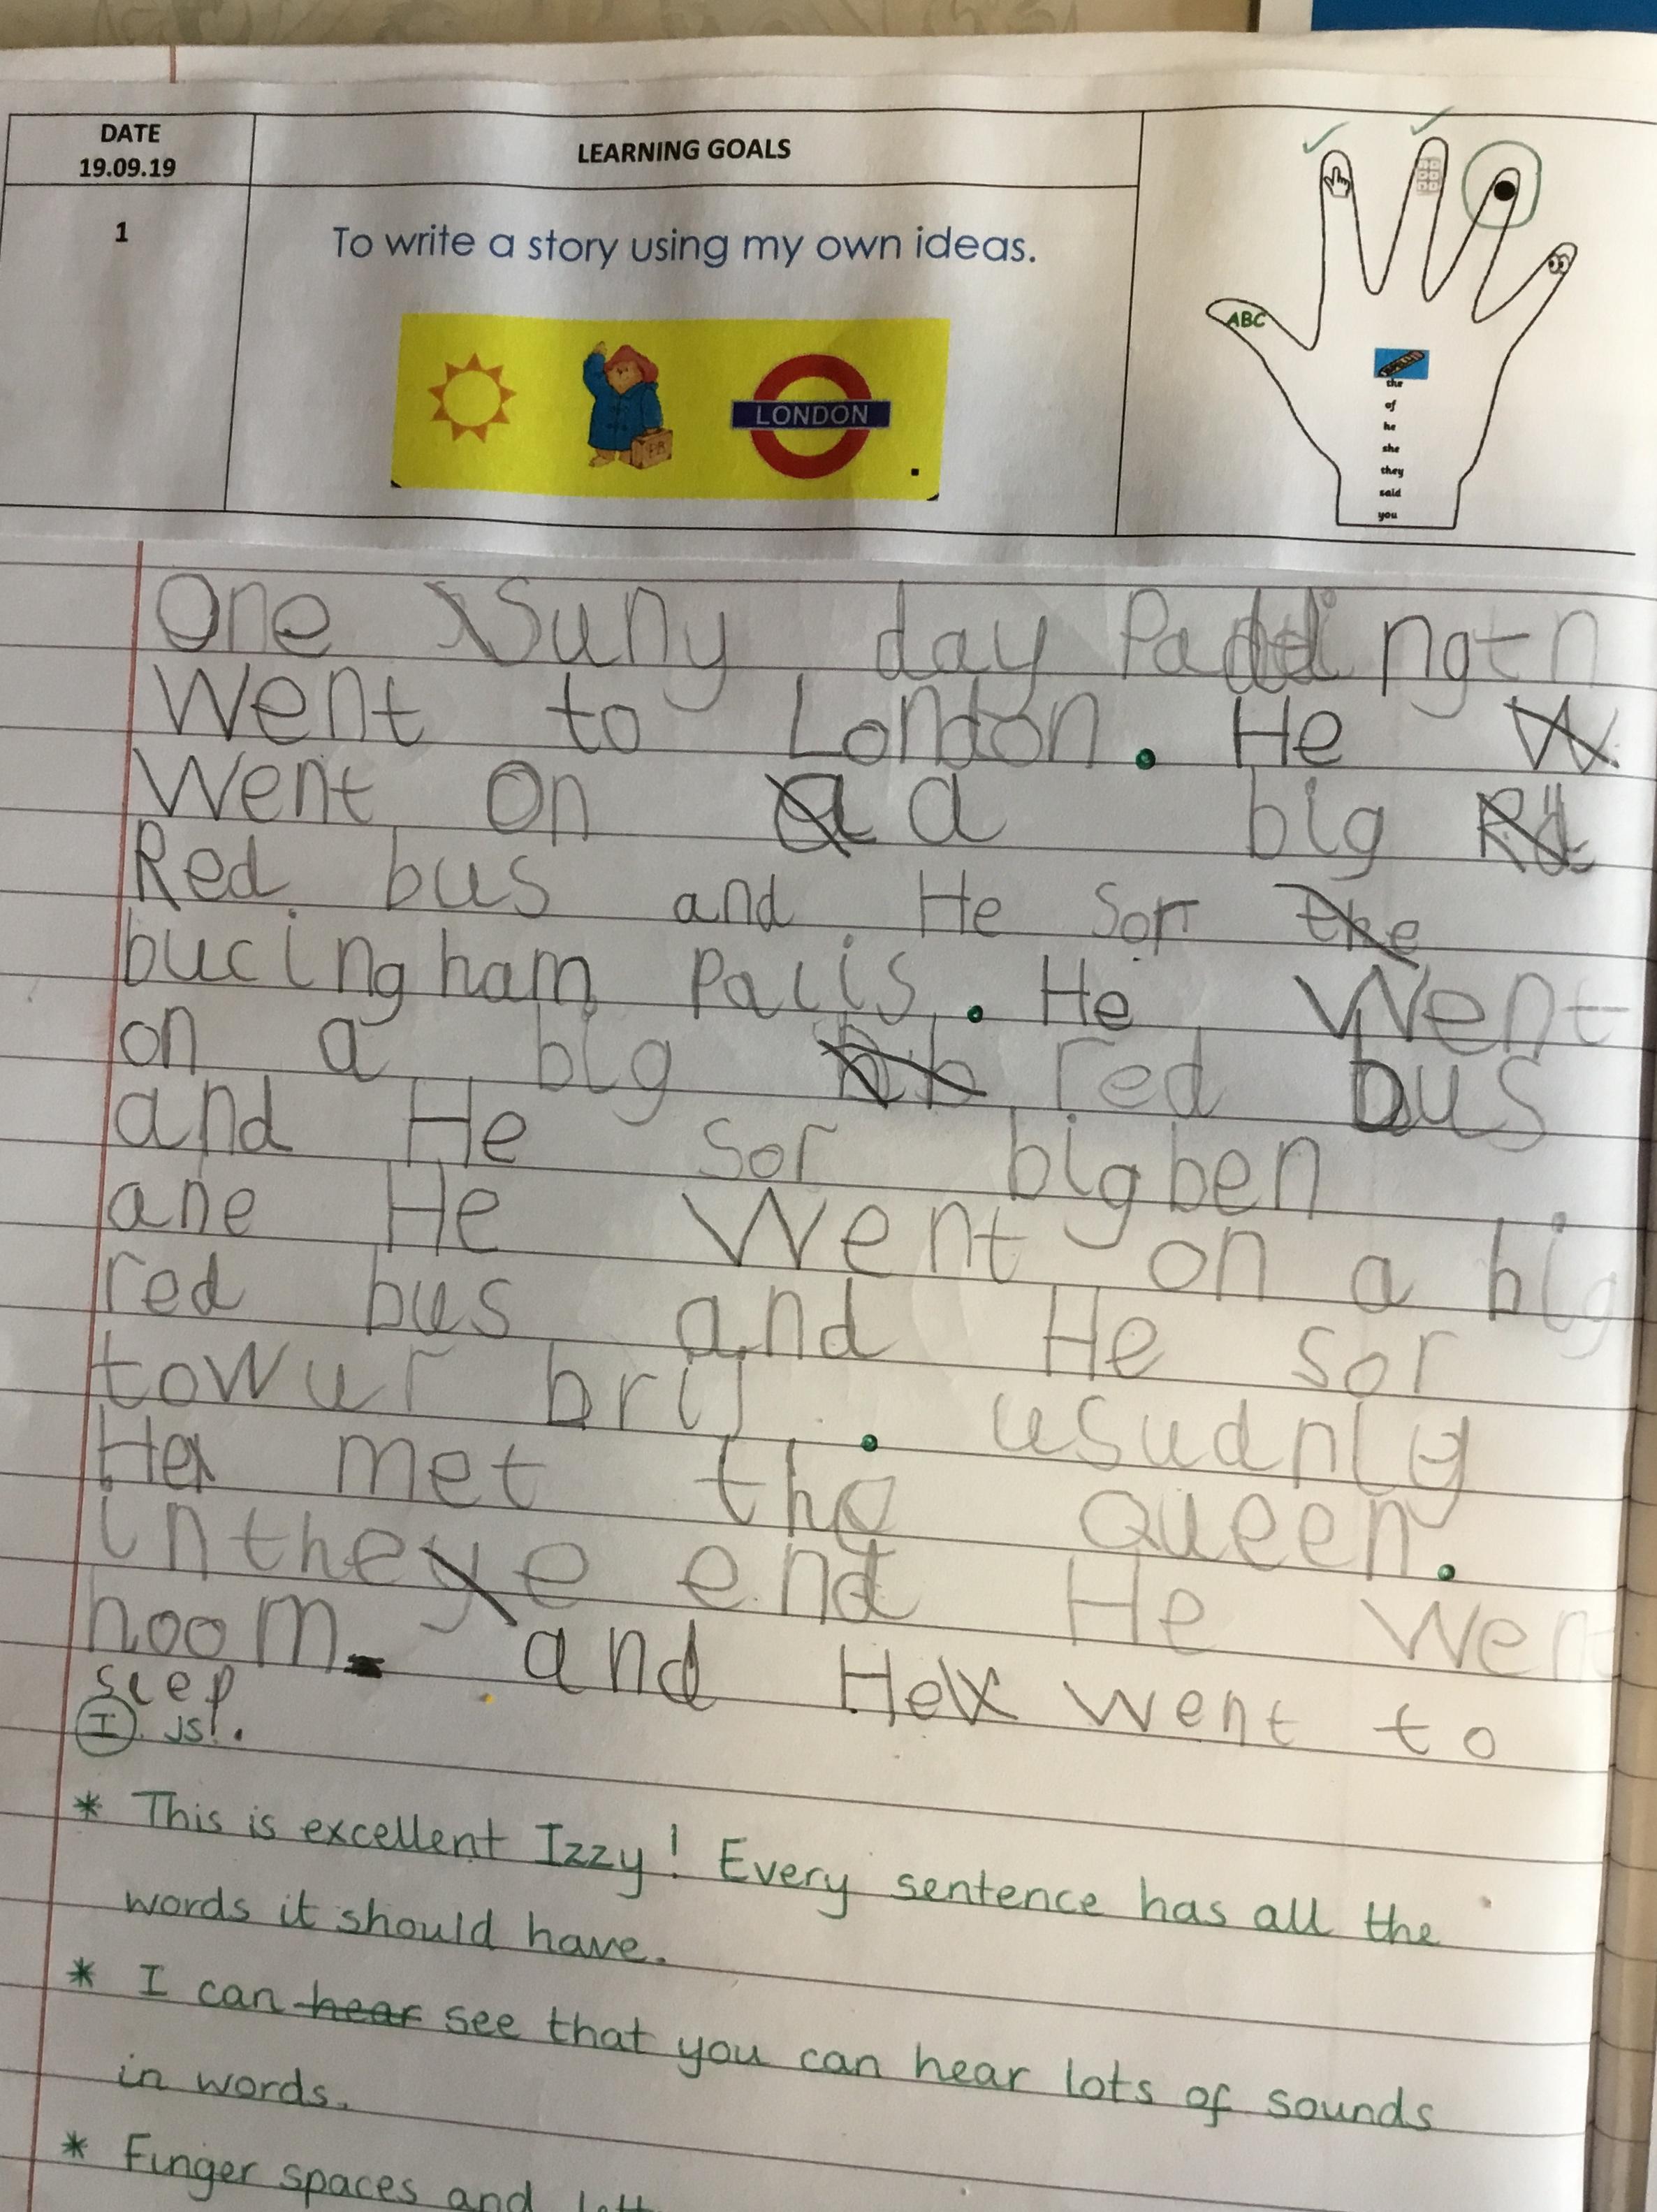 DATE
19.09.19
LEARNING GOALS
1
To write a story using my own ideas.
LONDON
PB
ABC
the
of
he
she
they
said
you
One Suny day Paddingtn
Went to London. He
Went on a big
Red bus and He sor
bucingham Palis. He Went
on a big red bus
and He sor big ben
ane He Went on a big
red bus and He sor
towur brij. usudnly
He met the Queen.
in the end He Wen
hoom. and He went to
slep
I js!.
* This is excellent Izzy! Every sentence has all the
words it should have.
* I can hear see that you can hear lots of sounds
in words.
* Finger spaces and